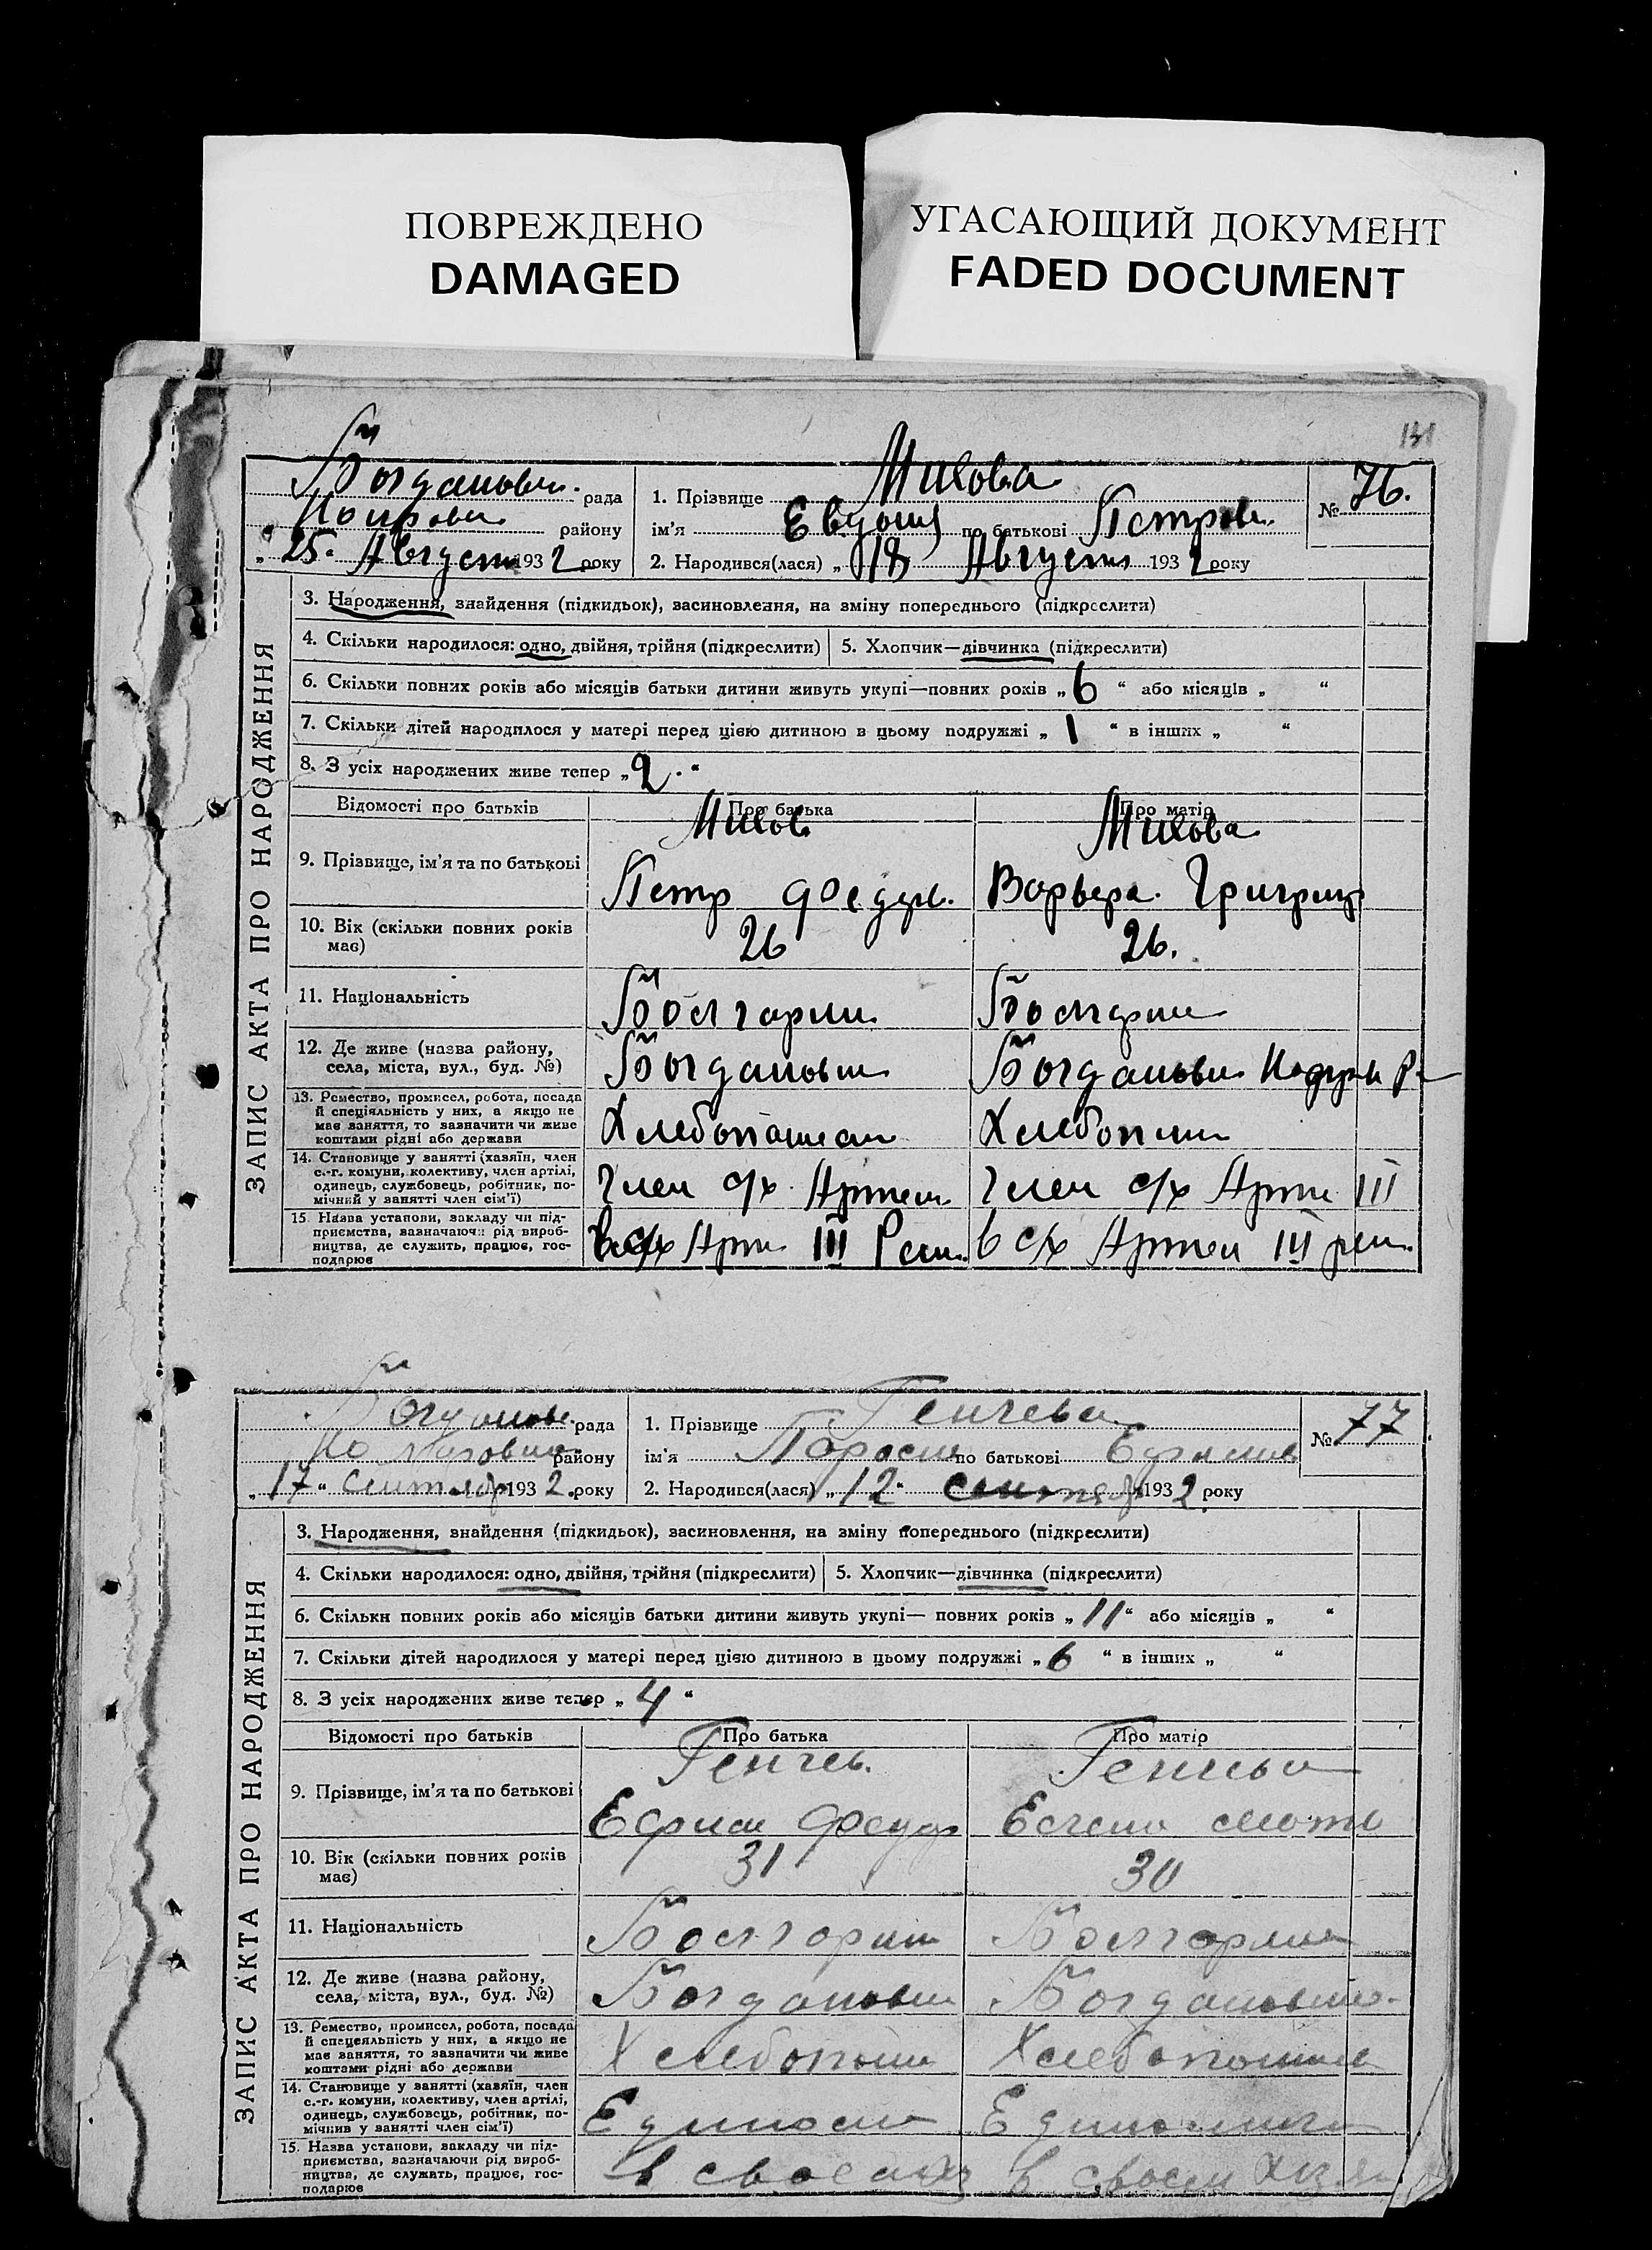 ПОВРЕЖДЕНО
DAMAGED
УГАСАЮЩИЙ ДОКУМЕНТ
FADED DOCUMENT
131
ЗАПИС АКТА ПРО НАРОДЖЕННЯ
Богдановк. рада
району
„ 25 " Августа 1932 року
1. Прізвище Милова
ім'я Евдокия по батькові Петров.
№ 76.
2. Народився(лася) „ 18 Августа 1932 року
3. Народження, знайдення (підкидьок), засиновлення, на зміну попереднього (підкреслити)
4. Скільки народилося: одно, двійня, трійня (підкреслити) 5. Хлопчик—дівчинка (підкреслити)
6. Скільки повних років або місяців батьки дитини живуть укупі—повних років „ 6 “ або місяців „ “
7. Скільки дітей народилося у матері перед цією дитиною в цьому подружжі „ 1 “ в інших „ “
8. З усіх народжених живе тепер „ 2. “
Відомості про батьків Про батька Про матір
Милов Милова
9. Прізвище, ім'я та по батькові Петр Федор. Варвара Григор
10. Вік (скільки повних років має) 26 26.
11. Національність Болгарин Болгарин
12. Де живе (назва району, села, міста, вул., буд. №) Богдановк Богдановк
13. Ремество, промисел, робота, посада й спеціяльність у них, а якщо не має заняття, то зазначити чи живе коштами рідні або держави Хлебопашец Хлебопаш
14. Становище у занятті (хазяїн, член с.-г. комуни, колективу, член артілі, одинець, службовець, робітник, помічний у занятті член сім'ї) Член с/х Артели Член с/х Артели III
15. Назва установи, закладу чи підприємства, вазначаючи рід виробництва, де служить, працює, господарює в с/х Арт. III Реш. в с/х Артели III реш.
ЗАПИС АКТА ПРО НАРОДЖЕННЯ
Богдановк. рада
району
„ 17 “ Сентября 1932 року
1. Прізвище Генчева
ім'я Парасков по батькові Ефимов
№ 77
2. Народився(лася) „ 12 “ Сентября 1932 року
3. Народження, знайдення (підкидьок), засиновлення, на зміну попереднього (підкреслити)
4. Скільки народилося: одно, двійня, трійня (підкреслити) 5. Хлопчик—дівчинка (підкреслити)
6. Скільки повних років або місяців батьки дитини живуть укупі— повних років „ 11 “ або місяців „ “
7. Скільки дітей народилося у матері перед цією дитиною в цьому подружжі „ 6 “ в інших „ “
8. З усіх народжених живе тепер „ 4 “
Відомості про батьків Про батька Про матір
Генчев. Генчева
9. Прізвище, ім'я та по батькові Ефим Федор
10. Вік (скільки повних років має) 31 30
11. Національність Болгарин Болгарин
12. Де живе (назва району, села, міста, вул., буд. №) Богдановк Богдановк.
13. Ремество, промисел, робота, посада й спецеяльність у них, а якщо не має заняття, то зазначити чи живе коштами рідні або держави Хлебопаш Хлебопашец
14. Становище у занятті (хазяїн, член с.-г. комуни, колективу, член артілі, одинець, службовець, робітник, помічнив у занятті член сім'ї) Единолич Единолични
15. Назва установи, закладу чи підприємства, вазначаючи рід виробництва, де служить, працює, господарює в своем хоз в своем хозя